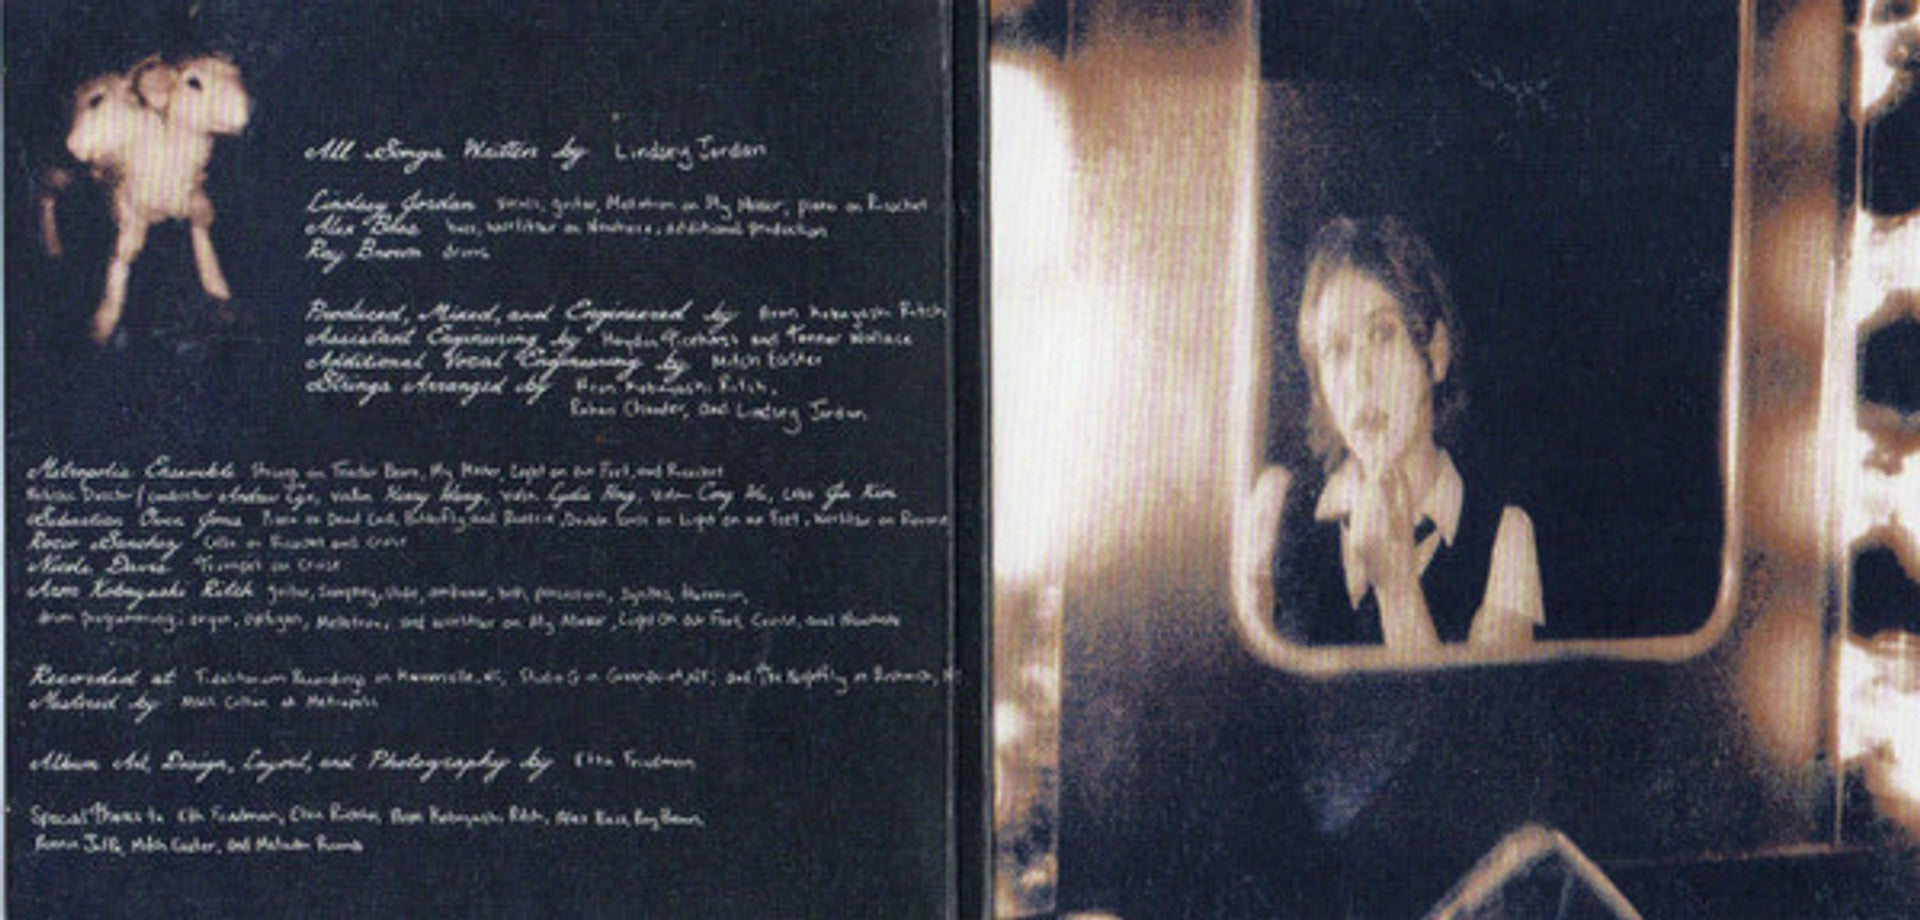 All Songs Written by Lindsey Jordan
Lindsey Jordan vocals, guitar, Mellotron on My Maker, piano on Ricochet
Alex Bass bass, wurlitzer on Nowhere, additional production
Ray Brown drums
Produced, Mixed, and Engineered by Aron Kobayashi Ritch
Assistant Engineering by Hayden Ticehurst and Tanner Wallace
Additional Vocal Engineering by Mitch Easter
Strings Arranged by Aron Kobayashi Ritch,
Rohan Chander, and Lindsey Jordan
Metropolis Ensemble Strings on Tractor Beam, My Maker, Light on Our Feet, and Ricochet
Artistic Director/conductor Andrew Cyr, violin Henry Wang, violin Lydia Hong, viola Cong Wu, cello Jia Kim
Sebastian Owen Jones Piano on Dead End, Butterfly, and Reverie, Double bass on Light on our Feet, Wurlitzer on Reverie
Rocio Sanchez Cello on Ricochet and Cruise
Nicole Davis Trumpet on Cruise
Aron Kobayashi Ritch guitar, sampling, slide, ambience, percussion, synths,
drum programming, organ, optigan, Mellotron, and wurlitzer on My Maker, Light On Our Feet, Cruise, and Nowhere
Recorded at Fidelitorium Recordings in Kernersville, NC; Studio G in Greenpoint, NY; and The Nightfly in
Mastered by at Metropolis
Album Art, Design, Layout, and Photography by Friedman
Special thanks to Friedman, Aron Kobayashi Ritch, Alex Bass, Ray Brown,
Mitch Easter, and